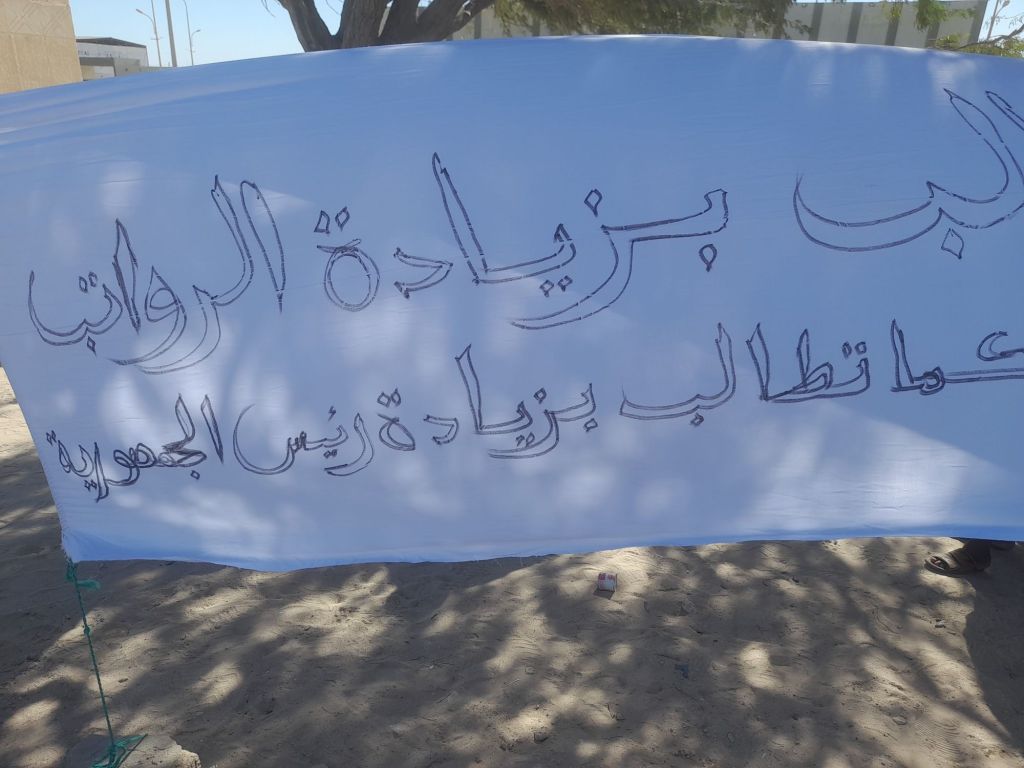 ـالب بزيادة الرواتب
كما نطالب بزيادة رئيس الجمهورية